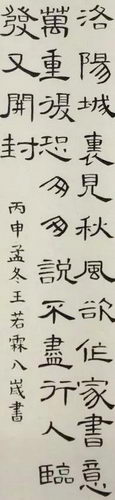 洛陽城裏見秋風欲作家書意
萬重復恐匆匆說不盡行人臨
發又開封
丙申孟冬王若霖八歲書